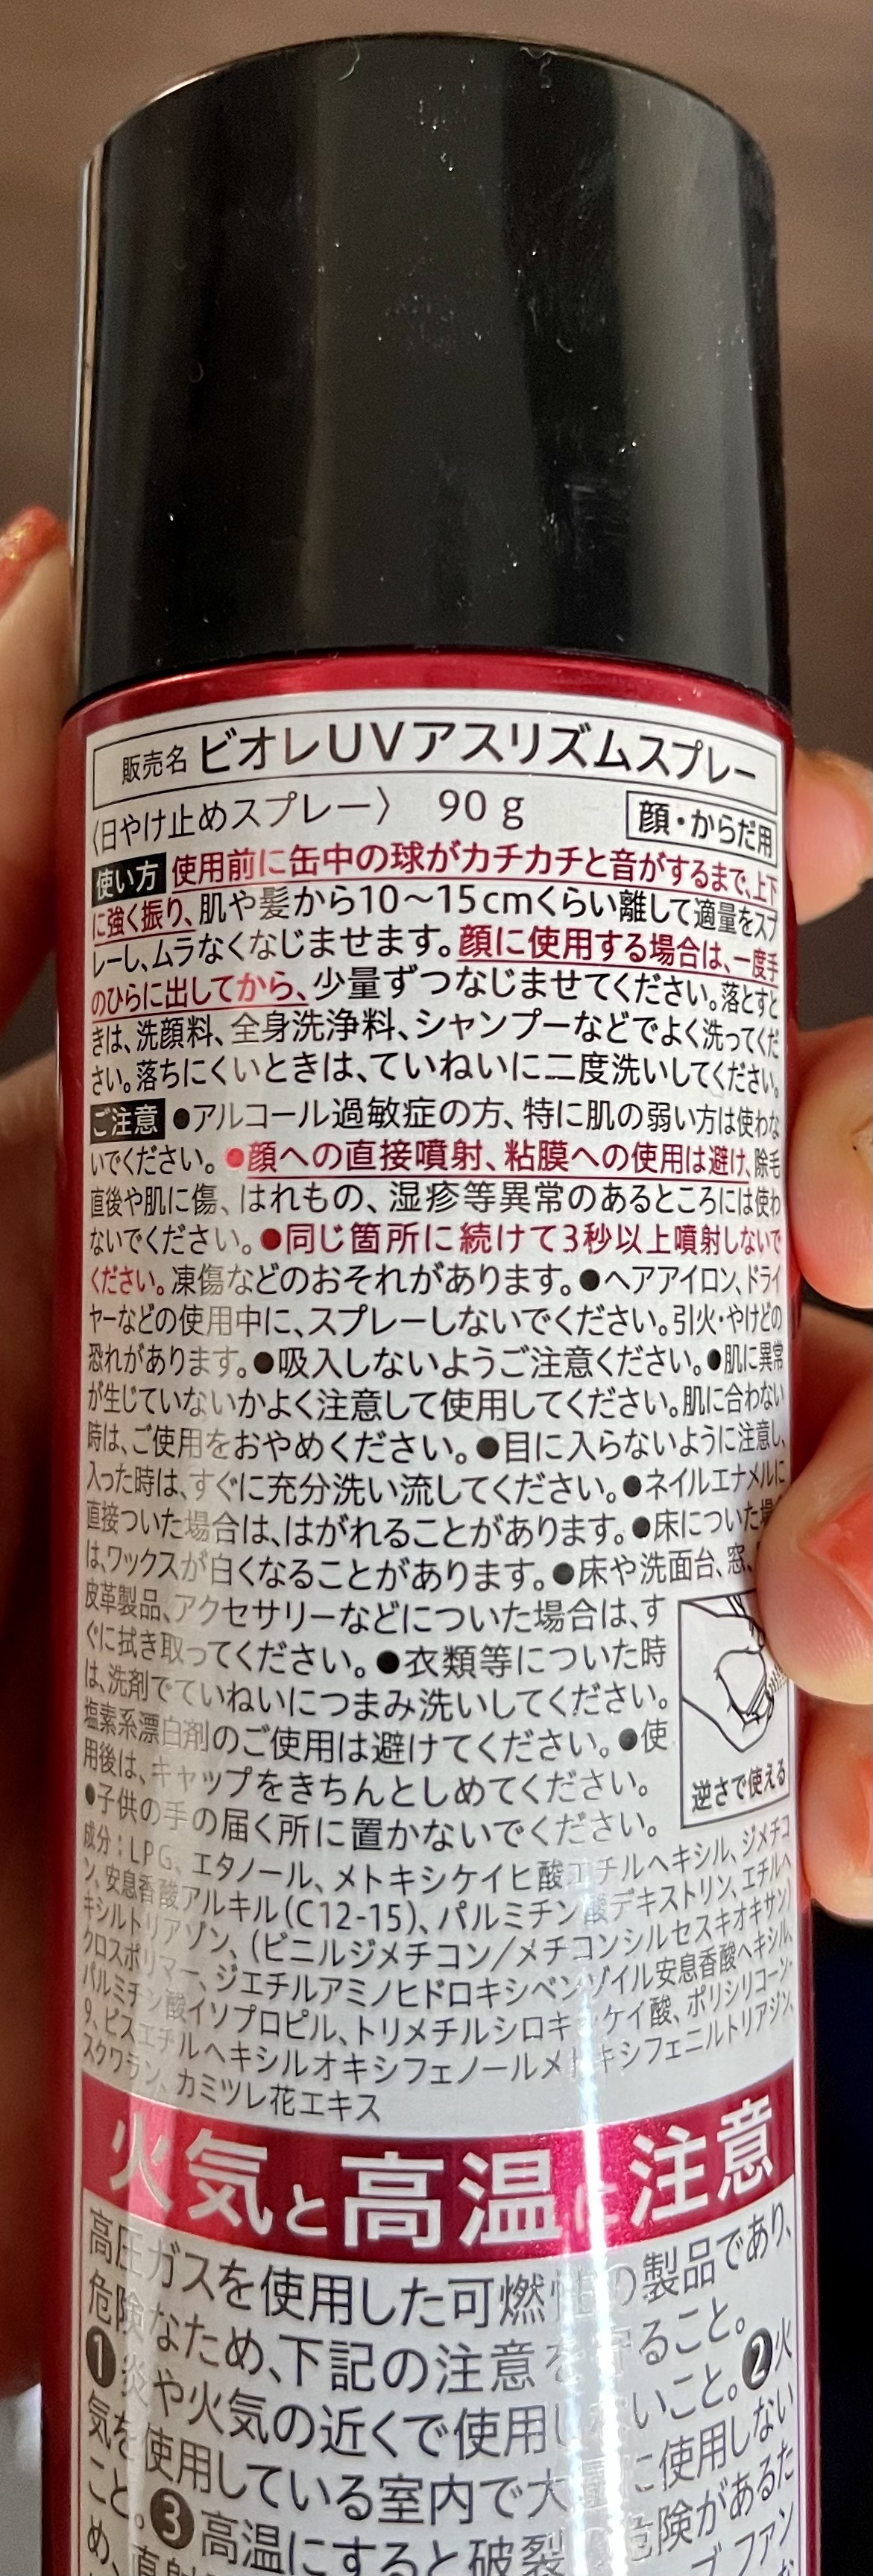 販売名 ビオレUVアスリズムスプレー
〈日やけ止めスプレー〉 90g 顔・からだ用
使い方 使用前に缶中の球がカチカチと音がするまで、上下
に強く振り、肌や髪から10〜15cmくらい離して適量をスプ
レーし、ムラなくなじませます。顔に使用する場合は、一度手
のひらに出してから、少量ずつなじませてください。落とすと
きは、洗顔料、全身洗浄料、シャンプーなどでよく洗ってくだ
さい。落ちにくいときは、ていねいに二度洗いしてください。
ご注意 ●アルコール過敏症の方、特に肌の弱い方は使わな
いでください。●顔への直接噴射、粘膜への使用は避け、除毛
直後や肌に傷、はれもの、湿疹等異常のあるところには使わ
ないでください。●同じ箇所に続けて3秒以上噴射しないで
ください。凍傷などのおそれがあります。●ヘアアイロン、ドライ
ヤーなどの使用中に、スプレーしないでください。引火・やけどの
恐れがあります。●吸入しないようご注意ください。●肌に異常
が生じていないかよく注意して使用してください。肌に合わない
時は、ご使用をおやめください。●目に入らないように注意し、
入った時は、すぐに充分洗い流してください。●ネイルエナメルに
直接ついた場合は、はがれることがあります。●床についた場
は、ワックスが白くなることがあります。●床や洗面台、窓、
皮革製品、アクセサリーなどについた場合は、す
ぐに拭き取ってください。●衣類等についた時
は、洗剤でていねいにつまみ洗いしてください。
塩素系漂白剤のご使用は避けてください。●使
用後は、キャップをきちんとしめてください。
●子供の手の届く所に置かないでください。
逆さで使える
成分:LPG、エタノール、メトキシケイヒ酸エチルヘキシル、ジメチコ
ン、安息香酸アルキル(C12-15)、パルミチン酸デキストリン、エチルヘ
キシルトリアゾン、(ビニルジメチコン/メチコンシルセスキオキサン)
クロスポリマー、ジエチルアミノヒドロキシベンゾイル安息香酸ヘキシル、
パルミチン酸イソプロピル、トリメチルシロキシケイ酸、ポリシリコーン-
9、ビスエチルヘキシルオキシフェノールメトキシフェニルトリアジン、
スクワラン、カミツレ花エキス
火気と高温に注意
高圧ガスを使用した可燃性の製品であり、
危険なため、下記の注意を守ること。
❶炎や火気の近くで使用しないこと。❷火
気を使用している室内で大量に使用しない
こと。❸高温にすると破裂の危険があるた
め、直射
ファン